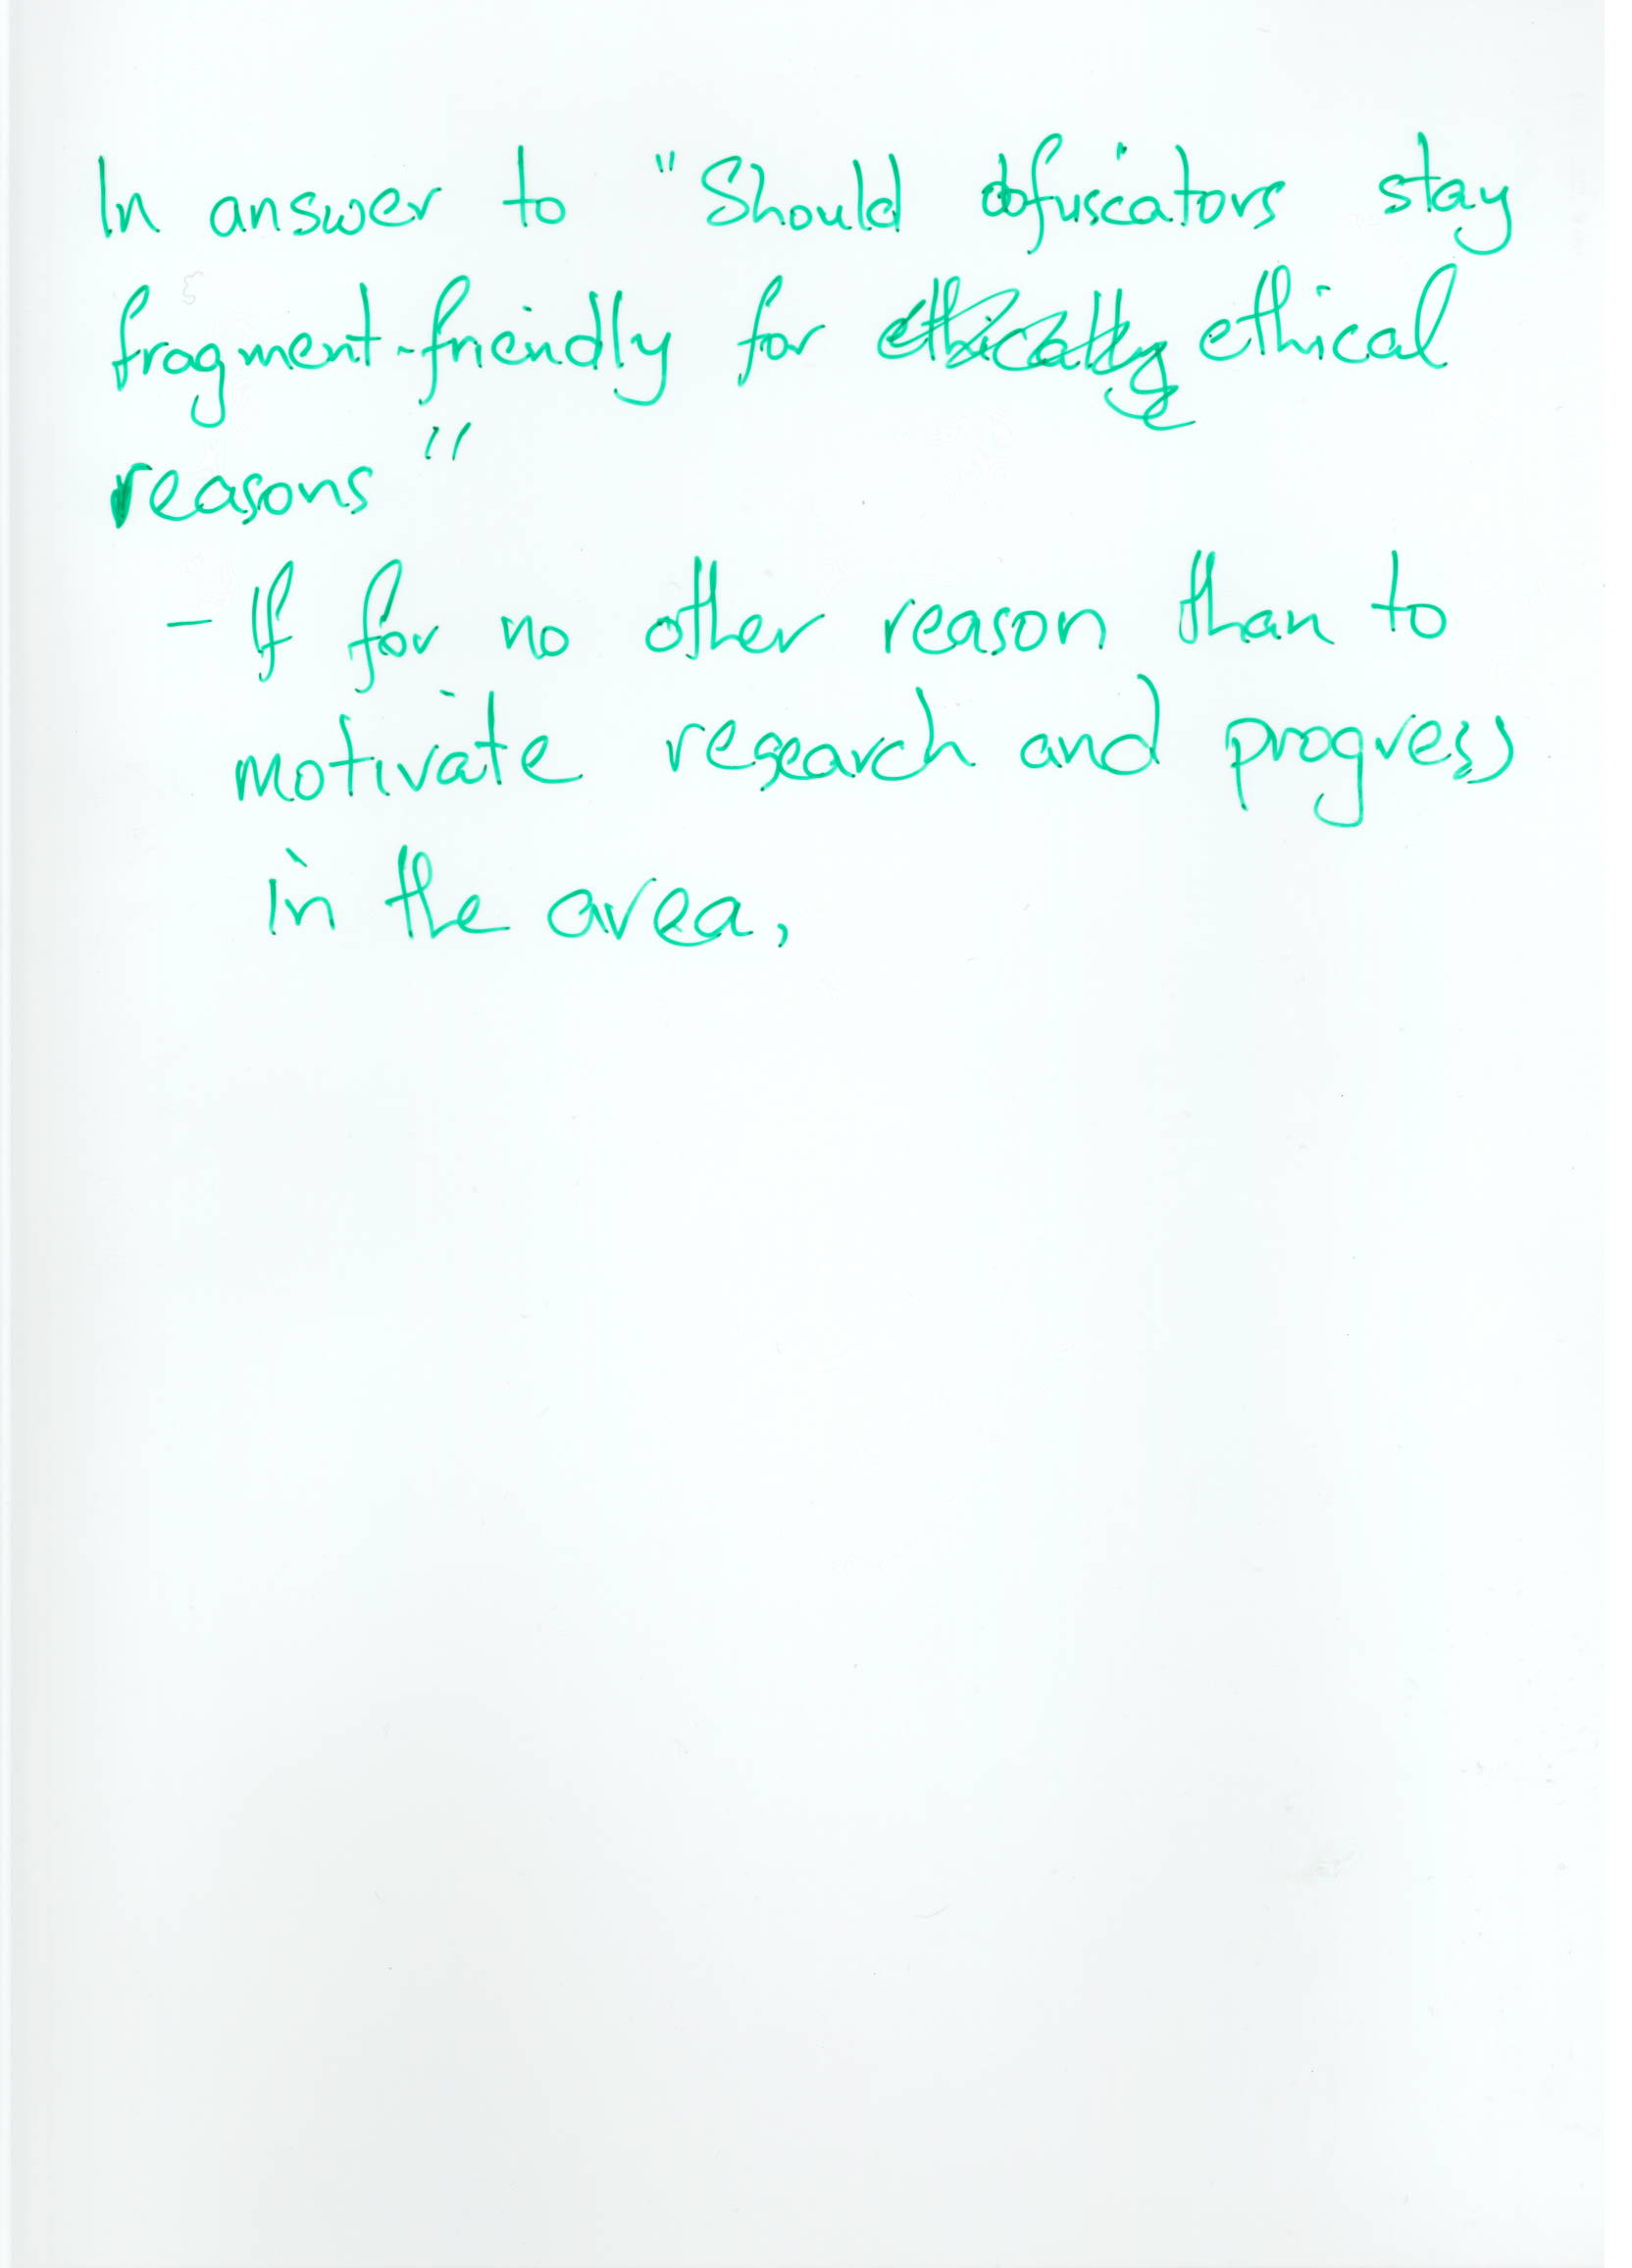 In answer to "Should obfuscators stay
fragment-friendly for ethical
reasons"
- If for no other reason than to
motivate research and progress
in the area,